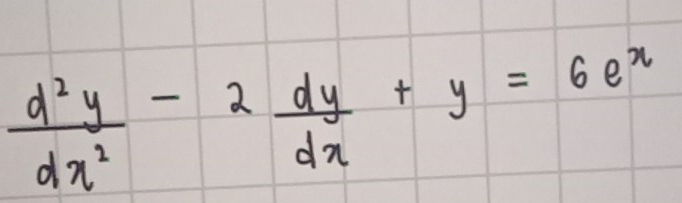 d²y/dx² - 2 dy/dx + y = 6e^x